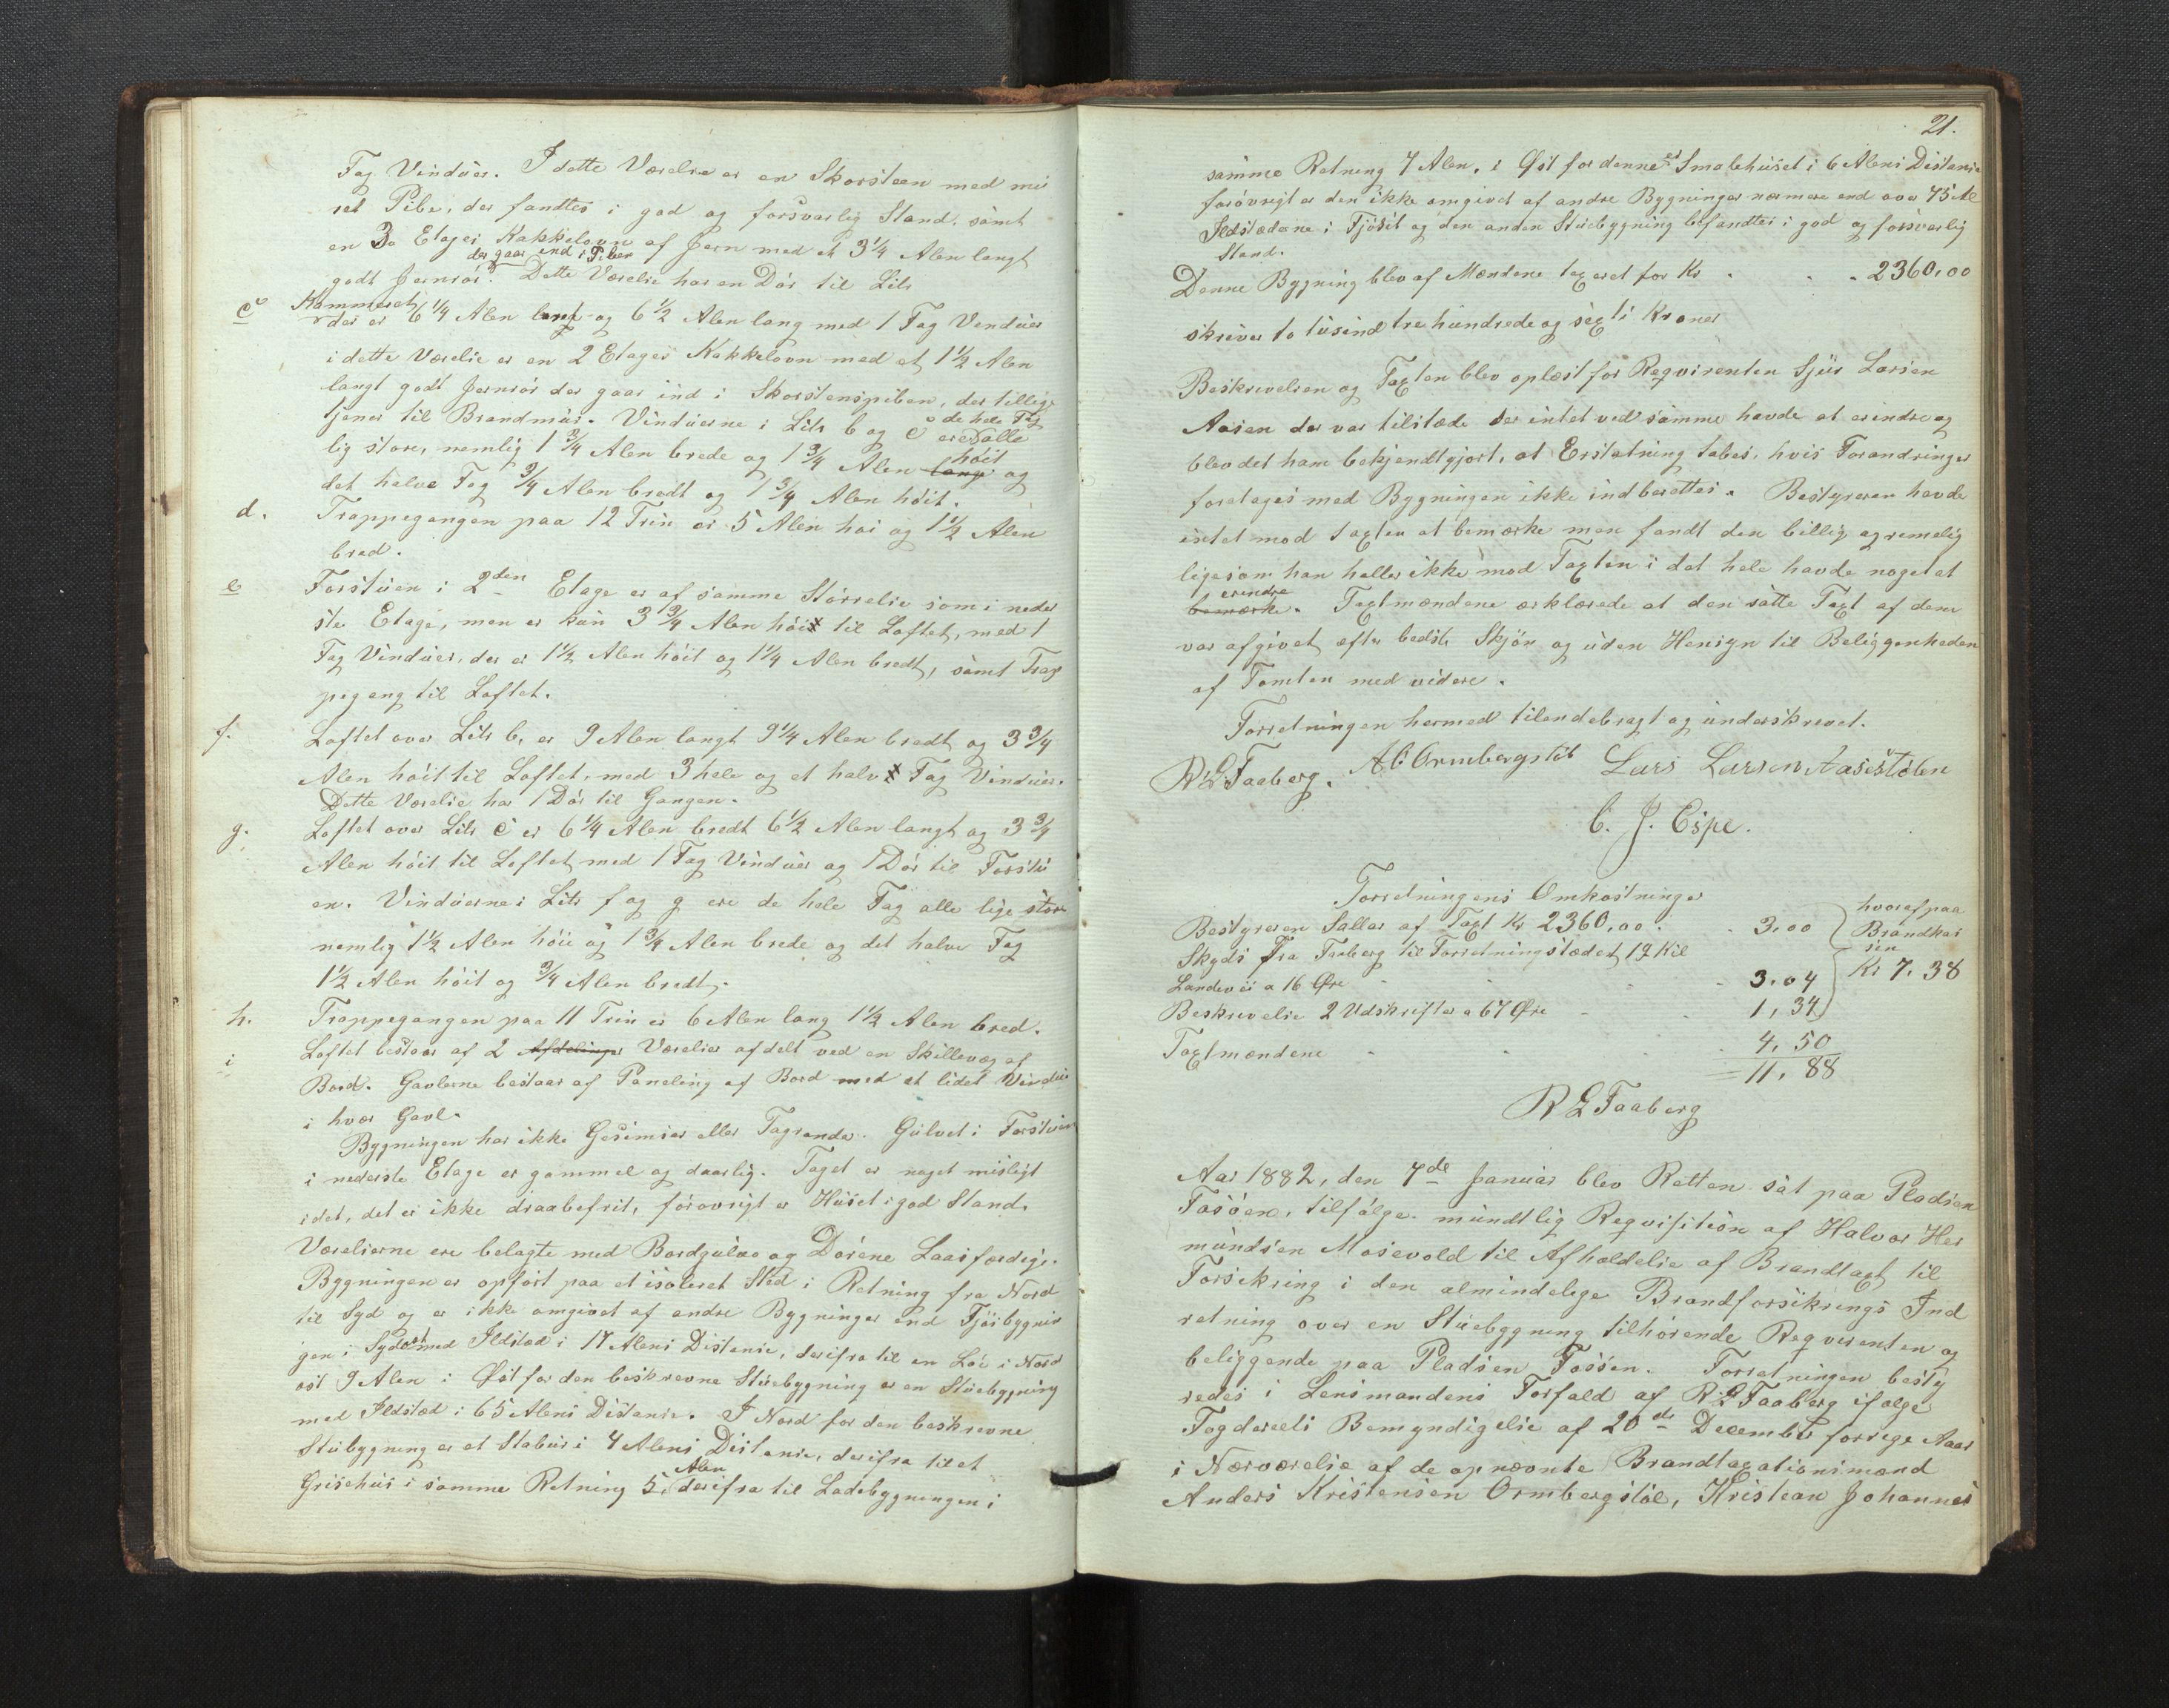 Tag Vinduer. I dette Værelse er en Skorsteen med mu
ret Pibe, der fandtes i god og forsvarlig Stand, samt
en 3o Etages Kakkelovn af Jern med et 3 1/4 Alen langt
der gaar ind i Piben
godt Jernrør. Dette Værelse har en Dør til Litr
c Kammeret,
der er 6 1/4 Alen lang og 6 1/2 Alen lang med 1 Fag Vinduer
i dette Værelse er en 2 Etages Kakkelovn med et 1 1/2 Alen
langt godt Jernrør der gaar ind i Skorstenspiben, der tillige
tjener til Brandmur. Vinduerne i Litr b og c ere de hele Fag alle
lig store, nemlig 1 3/4 Alen brede og 1 3/4 Alen lange høit og
det halve Fag 3/4 Alen bredt og 1 3/4 Alen høit.
d. Trappegangen paa 12 Trin er 5 Alen høi og 1 1/2 Alen
bred.
e Forstuen i 2den Etage er af samme Størrelse som i neder
ste Etage, men er kun 3 3/4 Alen høit til Loftet, med 1
Fag Vinduer, der er 1 1/2 Alen høit og 1 1/4 Alen bredt, samt Trap
pegang til Loftet.
f. Loftet over Litr b, er 9 Alen langt 9 1/4 Alen bredt og 3 3/4
Alen høit til Loftet, med 3 hele og et halvt Fag Vinduer.
Dette Værelse har 1 Dør til Gangen.
g. Loftet over Litr c er 6 1/4 Alen bredt 6 1/2 Alen langt og 3 3/4
Alen høit til Loftet med 1 Fag Vinduer og 1 Dør til Forstu
en. Vinduerne i Litr f og g ere de hele Fag alle lige store
nemlig 1 1/2 Alen høie og 1 3/4 Alen brede og det halve Fag
1 1/2 Alen høit og 3/4 Alen bredt.
h. Trappegangen paa 11 Trin er 6 Alen lang 1 1/2 Alen bred.
i Loftet bestaar af 2 Afdelinger Værelser afdelt ved en Skillevæg af
Bord. Gavlerne bestaar af Paneling af Bord med et lidet Vindu
i hver Gavl.
Bygningen har ikke Gesimser eller Tagrender. Gulvet i Forstuen
i nederste Etage er gammel og daarlig. Taget er noget misligt
idet, det er ikke draabefrit, forøvrigt er Huset i god Stand,
Værelserne ere belagte med Bordgulve og Dørene Laasfærdige.
Bygningen er opført paa et isoleret Sted i Retning fra Nord
til Syd og er ikke omgivet af andre Bygninger end Fjøsbygnin
gen i Sydost med Ildsted i 17 Alens Distanse, derifra til en Løe i Nord
ost 9 Alen i Øst for den beskrevne Stuebygning er en Stuebygning
med Ildsted i 65 Alens Distanse. I Nord for den beskrevne
Stubygning er et Stabur i 4 Alens Distanse, derifra til et
Grisehus i samme Retning 5 Alen, derifra til Ladebygningen i
21.
samme Retning 7 Alen, i Øst for denne er Smalehuset i 6 Alens Distanse
forøvrigt er den ikke omgivet af andre Bygninger nærmere end over 75 Al
Ildstedene i Fjøset og den anden Stuebygning befandtes i god og forsvarlig
Stand.
Denne Bygning blev af Mændene taxeret for Kr . . . 2360,00
skriver to tusind tre hundrede og sexti Kroner
Beskrivelsen og Taxten blev oplæst for Reqvirenten Sjur Larsen
Aasen der var tilstæde der intet ved samme havde at erindre og
blev det ham bekjendtgjort, at Erstatning tabes, hvis Forandringer
foretages med Bygningen ikke indberettes. Bestyreren havde
intet mod Taxten at bemærke men fandt den billig og rimelig
ligesom han heller ikke mod Taxten i det hele havde noget at
bemærke erindre. Taxtmændene erklærede at den satte Taxt af dem
var afgivet efter bedste Skjøn og uden Hensyn til Beliggenheden
af Tomten med videre.
Forretningen hermed tilendebragt og underskrevet.
R L Faaberg. A C Ormbergstøl Lars Larsen Aasestølen
C. J. Espe.
Forretningens Omkostninger
Bestyreren Sallar af Taxt Kr 2360,00 . . 3,00
Skyds fra Faaberg til Forretningstædet 19 Kil
Landevei a 16 Øre . . . 3,04
Beskrivelse 2 Udskrifter a 67 Øre . . 1,34
hvoraf paa
Brandkas
sen
Kr 7,38
Taxtmændene . . . 4,50
11,88
R L Faaberg
Aar 1882, den 7de Januar blev Retten sat paa Pladsen
Fosøen, tilfølge mundtlig Reqvisition af Halvor Her
mundsen Mosevold til Afholdelse af Brandtaxt til
Forsikring i den almindelige Brandforsikrings Ind
retning over en Stuebygning tilhørende Reqvirenten og
beliggende paa Pladsen Fossen. Forretningen besty
redes i Lensmandens Forfald af R L Faaberg ifølge
Fogderiets Bemyndigelse af 20de December forrige Aar
i Nærværelse af de opnævnte Brandtaxationsmænd
Anders Kristensen Ormbergstøl, Kristean Johannes